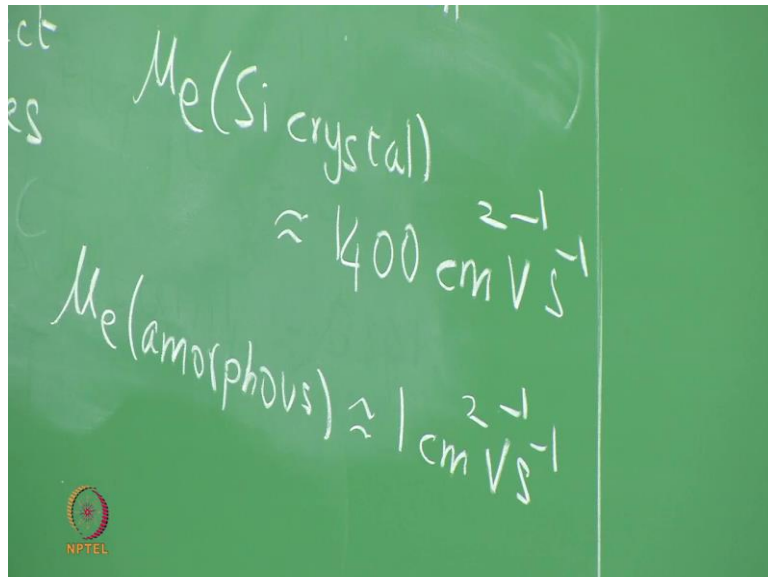 ct
es
μe(Si crystal)
≈ 1400 cm² V⁻¹ s⁻¹
μe(amorphous) ≈ 1 cm² V⁻¹ s⁻¹
NPTEL